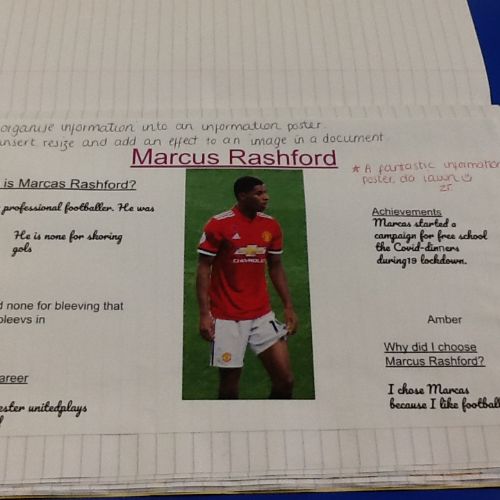 organise information into an information poster.
insert resize and add an effect to an image in a document
Marcus Rashford
* A fantastic information
poster,
is Marcas Rashford?
professional footballer. He was
He is none for skoring
gols
none for bleeving that
bleevs in
areer
ester unitedplays
CHEVROLET
Achievements
Marcas started a
campaign for free school
the Covid-dinners
during19 lockdown.
Amber
Why did I choose
Marcus Rashford?
I chose Marcas
because I like football